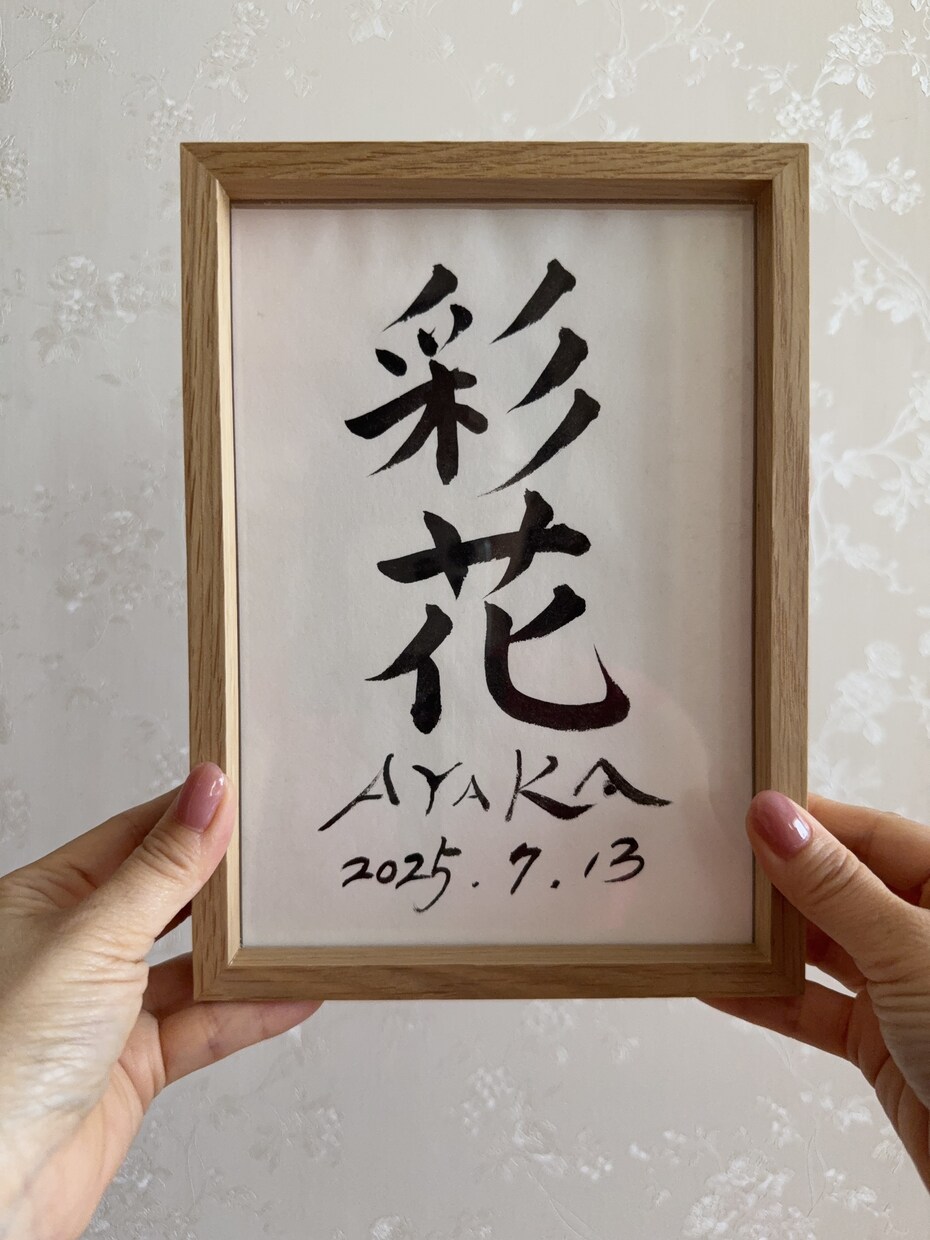 彩花
AYAKA
2025.7.13